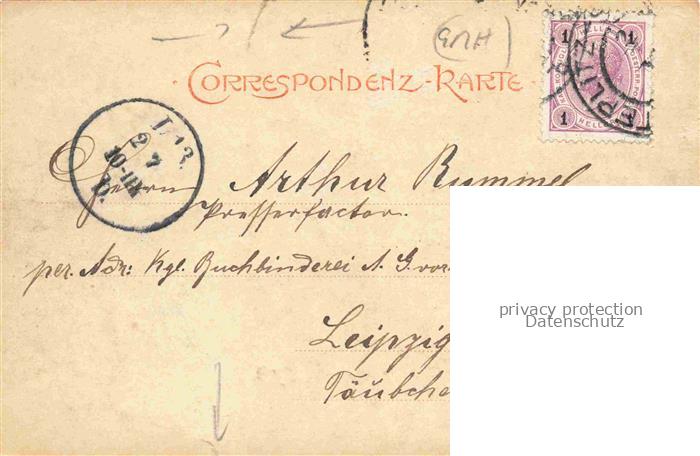 CORRESPONDENZ-KARTE
1 HELLER 1
TEPLITZ
1 HELLER 1
L. 13.
2 7
10-11
b.
Herrn Arthur Rummel
Presserfactor.
per. Adr: Kgl. Buchbinderei A. G. vor
Leipzig
Täubche
privacy protection
Datenschutz